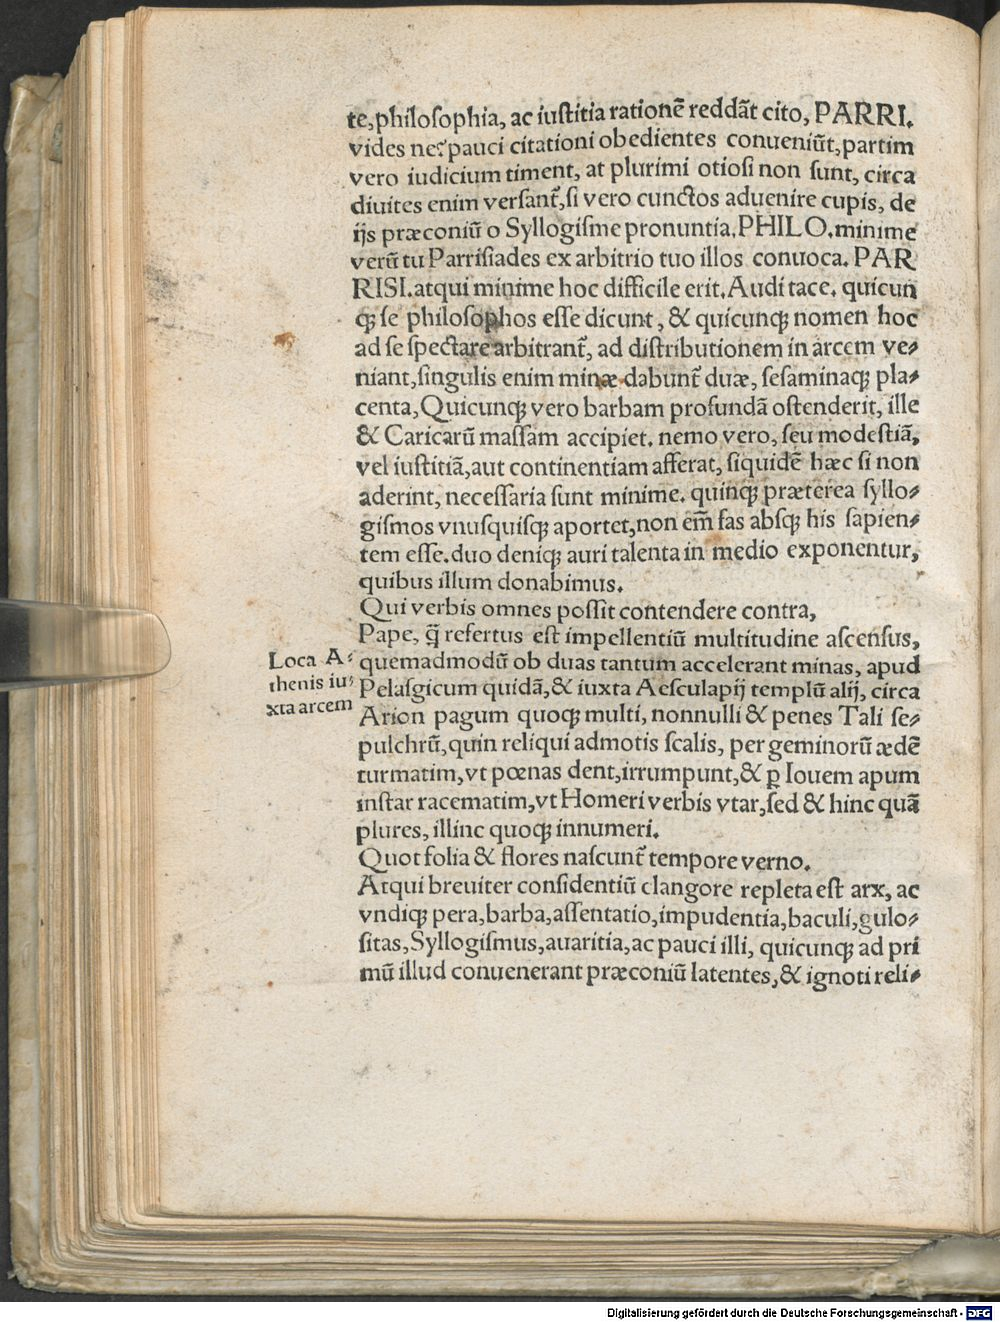 te,philosophia, ac iustitia rationē reddāt cito, PARRI.
vides ne? pauci citationi obedientes conueniūt,partim
vero iudicium timent, at plurimi otiosi non sunt, circa
diuites enim versant̃,si vero cunctos aduenire cupis, de
ijs præconiū o Syllogisme pronuntia.PHILO.minime
verū tu Parrisiades ex arbitrio tuo illos conuoca. PAR
RISI.atqui minime hoc difficile erit.Audi tace. quicun
qꝫ se philosophos esse dicunt, & quicunqꝫ nomen hoc
ad se spectare arbitrant̃, ad distributionem in arcem ve⸗
niant,singulis enim minæ dabunt̃ duæ, sesaminaqꝫ pla⸗
centa,Quicunqꝫ vero barbam profundā ostenderit, ille
& Caricarū massam accipiet. nemo vero, seu modestiā,
vel iustitiā,aut continentiam afferat, siquidē hæc si non
aderint, necessaria sunt minime. quinqꝫ præterea syllo⸗
gismos vnusquisqꝫ aportet,non em̄ fas absqꝫ his sapien⸗
tem esse.duo deniqꝫ auri talenta in medio exponentur,
quibus illum donabimus.
Qui verbis omnes possit contendere contra,
Pape, q̄ refertus est impellentiū multitudine ascensus,
quemadmodū ob duas tantum accelerant minas, apud
Pelasgicum quidā,& iuxta Aesculapij templū alij, circa
Arion pagum quoqꝫ multi, nonnulli & penes Tali se⸗
pulchrū,quin reliqui admotis scalis, per geminorū ædē
turmatim,vt pœnas dent,irrumpunt,& ꝑ Iouem apum
instar racematim,vt Homeri verbis vtar,sed & hinc quā
plures, illinc quoqꝫ innumeri.
Quot folia & flores nascunt̃ tempore verno.
Atqui breuiter considentiū clangore repleta est arx, ac
vndiqꝫ pera,barba,assentatio,impudentia,baculi,gulo⸗
sitas,Syllogismus,auaritia,ac pauci illi, quicunqꝫ ad pri
mū illud conuenerant præconiū latentes,& ignoti reli⸗
Loca A⸗
thenis iu⸗
xta arcem
Digitalisierung gefördert durch die Deutsche Forschungsgemeinschaft - DFG